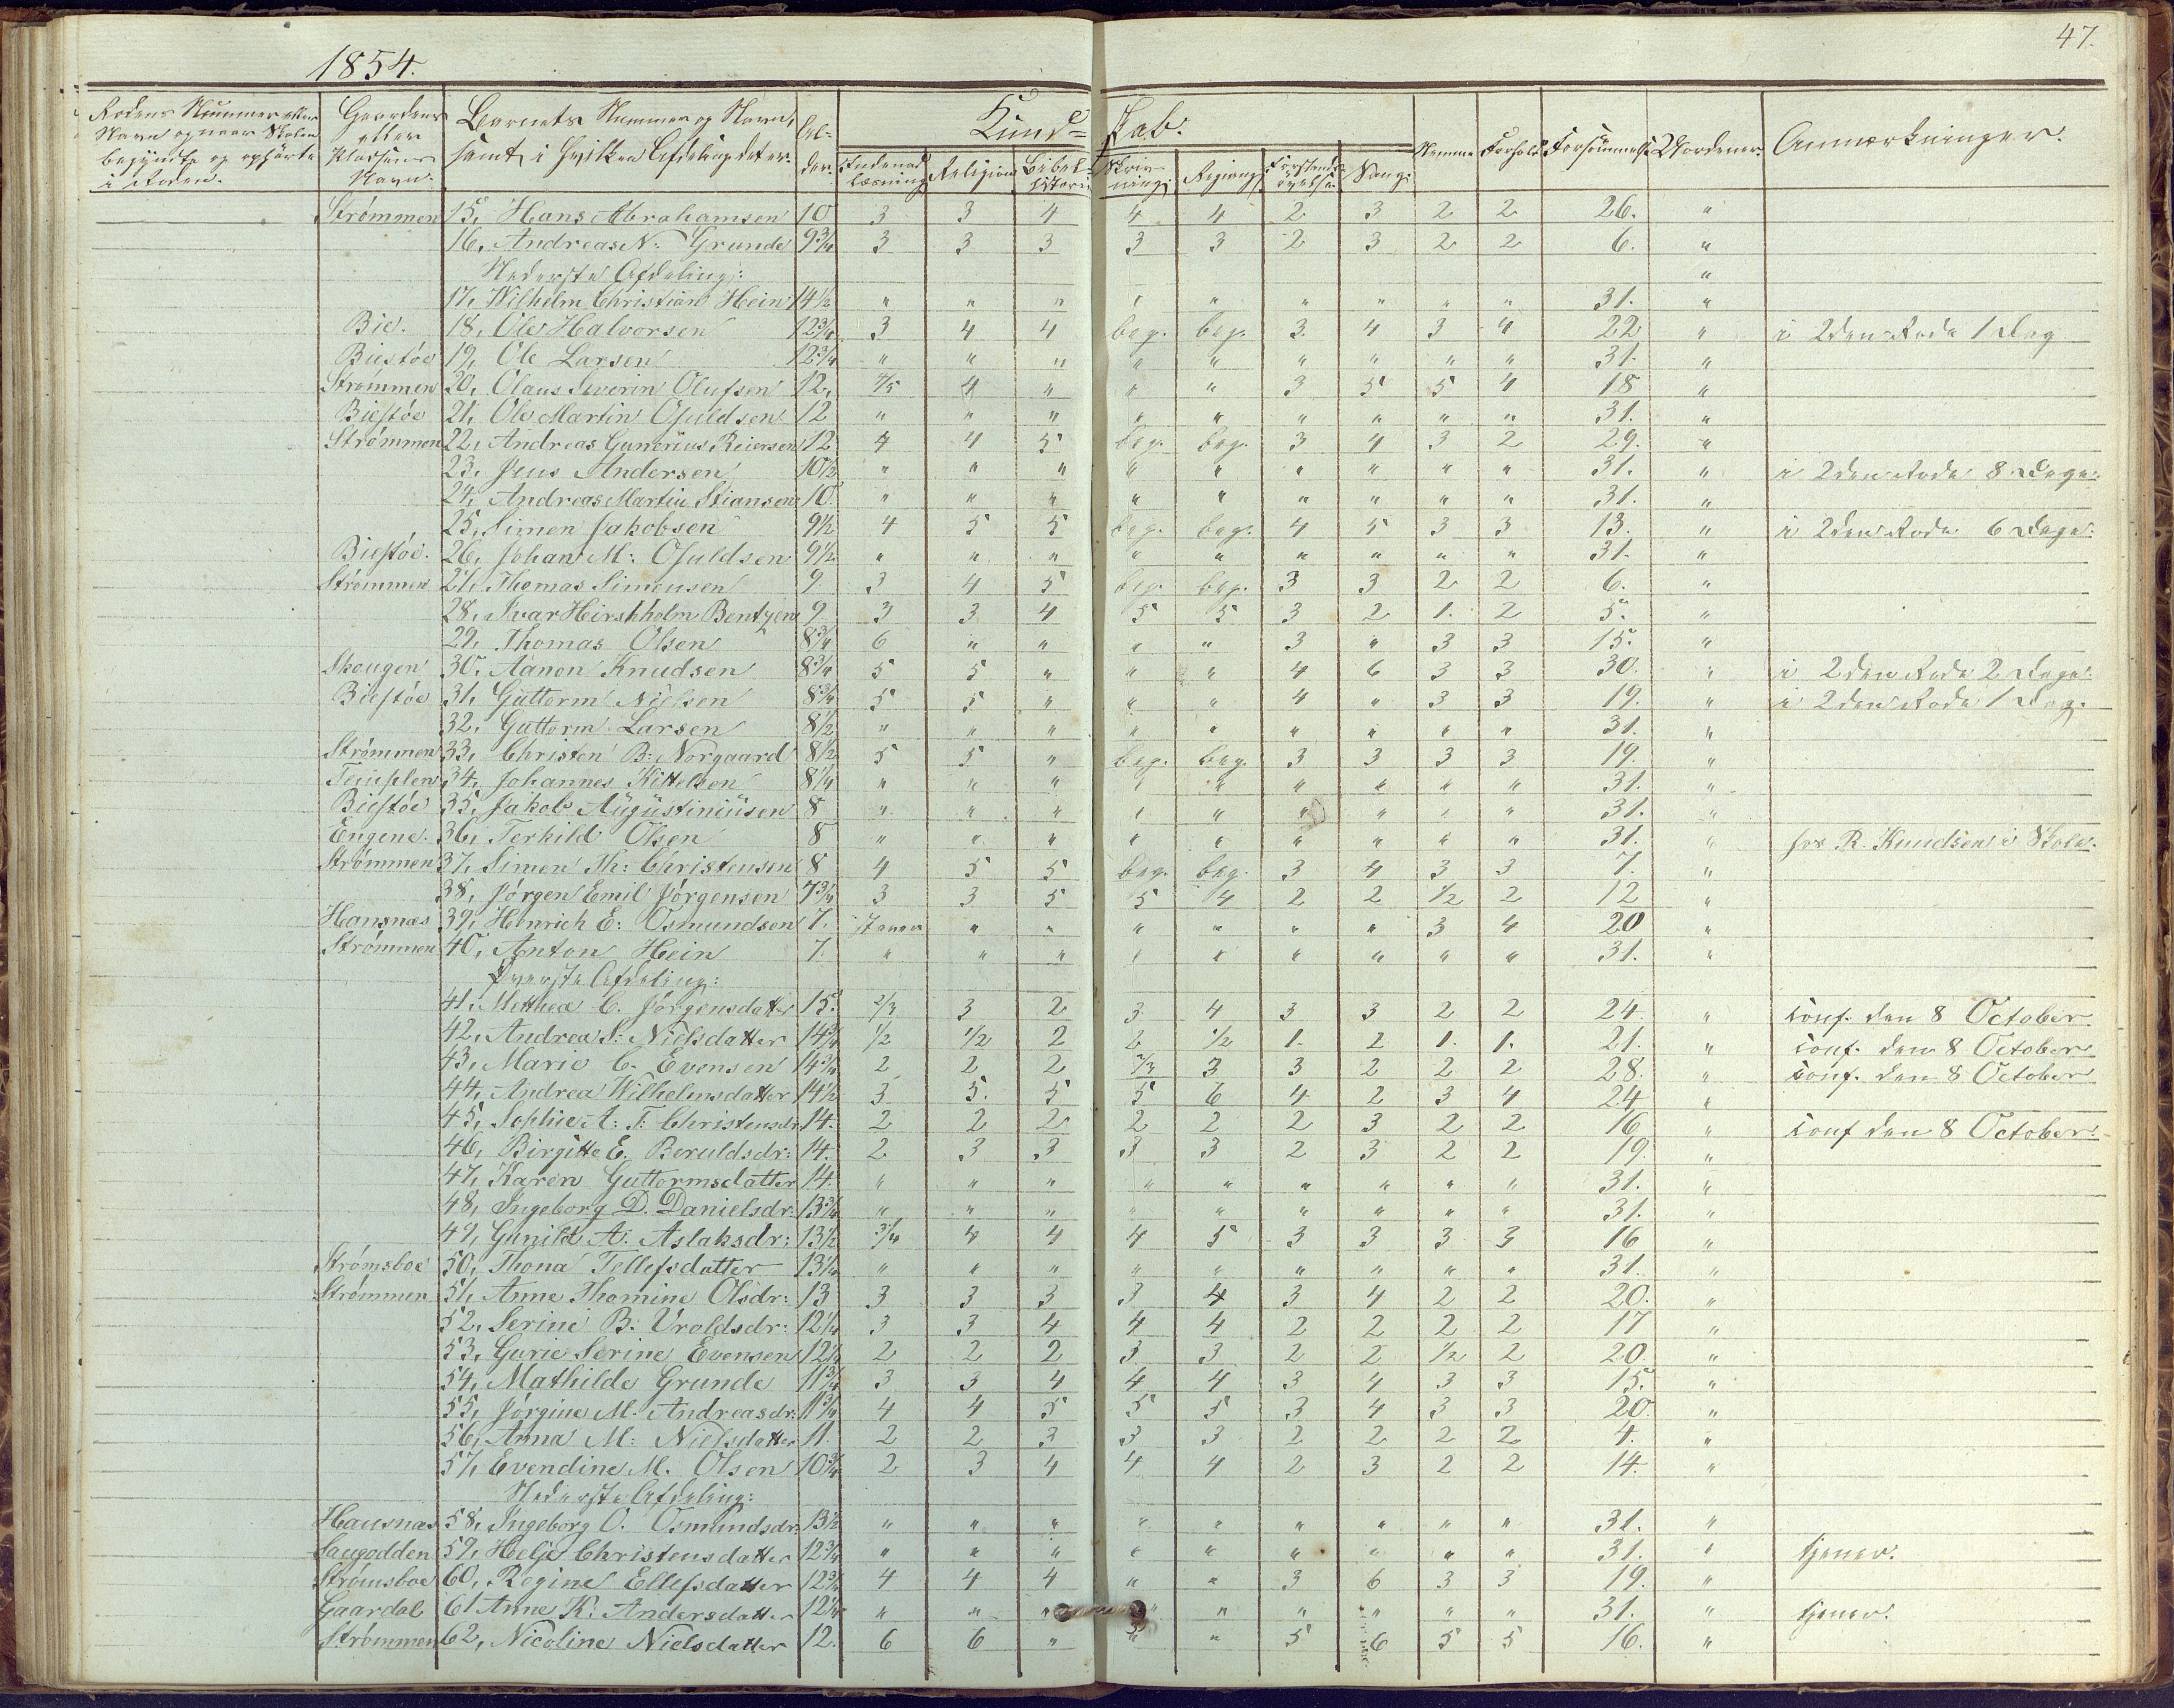 47.
1854.
Rodens Nummer eller Navn og naar Skolen begyndte og ophørte i Roden. | Gaardens eller Pladsens Navn. | Barnets Nummer og Navn, samt i hvilken Afdeling det er. | Alder. | Kundskab: Indenadlæsning | Religion | Bibelhistorie | Skrivning | Regning | Forstandsøvelse | Sang | Nemme | Forhold | Forsømmelse | Anmærkninger.
Strømmen 15, Hans Abrahamsen 10 3 3 4 4 4 2 3 2 2 26. "
16, Andreas N: Grunde 9¾ 3 3 3 3 3 2 3 2 2 6. "
Nederste Afdeling: "
17, Wilhelm Christian Hein 14½ " " " " " " " " " 31. "
Bie. 18, Ole Halvorsen 12¾ 3 4 4 beg. beg. 3. 4 3 4 22 " i 2den Rode 1 Dag
Biestøe 19, Ole Larsen 12¾ " " " " " " " " " 31. "
Strømmen 20, Claus Severin Olufsen 12, 4/5 4 " " " 3 5 5 4 18 "
Biestøe 21, Ole Martin Osuldsen 12 " " " " " " " " " 31. "
Strømmen 22, Andreas Gunerius Reiersen 12 4 4 5 beg. beg. 3 4 3 2 29. "
23, Jens Andersen 10½ " " " " " " " " " 31. " i 2den Rode 8 Dage.
24, Andreas Martin Stiansen 10. " " " " " " " " " 31. "
25, Simen Jakobsen 9½ 4 5 5 beg. beg. 4 5 3 3 13. " i 2den Rode 6 Dage.
Biestøe. 26, Johan M: Osuldsen 9½ " " " " " " " " " 31. "
Strømmen 27, Thomas Simonsen 9 3 4 5 beg. beg. 3 3 2 2 6. "
28, Ivar Hirshholm Bentzen 9 3 3 4 5 5 3 2 1. 2 5. "
29, Thomas Olsen 8¾ 6 " " " " 3 " 3 3 15. "
Skougen 30, Aanon Knudsen 8¾ 5 5 " " " 4 6 3 3 30. " i 2den Rode 2 Dage.
Biestøe 31, Guttorm Nielsen 8¾ 5 5 " " " 4 " 3 3 19. " i 2den Rode 1 Dag.
32, Guttorm Larsen 8½ " " " " " " " " " 31. "
Strømmen 33, Christen B: Norgaard 8½ 5 5 " beg. beg. 3 3 3 3 19. "
Templen 34, Johannes Kittelsen 8¼ " " " " " " " " " 31. "
Biestøe 35, Jakob Augustiniusen 8 " " " " " " " " " 31. "
Engene. 36, Terkild Olsen 8 " " " " " " " " " 31. " hos R. Knudsen i Skole.
Strømmen 37, Simen Th: Christensen 8 4 5 5 beg. beg. 3 4 3 3 7. "
38, Jørgen Emil Jørgensen 7¾ 3 3 5 5 4 2 2 ½ 2 12 "
Hansnæs 39, Henrich E: Osmundsen 7. staver " " " " " " 3 4 20 "
Strømmen 40, Anton Hein 7. " " " " " " " " " 31. "
Øverste Afdeling:
41, Mettnea C. Jørgensdatter 15. 2/3 3 2 3 4 3 3 2 2 24. " conf. den 8 October
42, Andrea S: Nielsdatter 14¾ ½ ½ 2 2 ½ 1. 2 1. 1. 21. " conf. den 8 October
43, Marie C. Evensen 14¾ 2 2 2 2/3 3 3 2 2 2 28. " conf. den 8 October
44, Andrea Wilhelmsdatter 14½ 3 5. 5 5 6 4 2 3 4 24 "
45, Sophie A: T: Christensdr. 14. 2 2 2 2 2 2 3 2 2 16 " conf den 8 October
46, Birgitte E. Beruldsdr: 14. 2 3 3 3 3 2 3 2 2 19. "
47, Karen Guttormsdatter 14. " " " " " " " " " 31. "
48, Ingeborg D. Danielsdr. 13¾ " " " " " " " " " 31. "
49, Gunild A. Aslaksdr: 13½ 3/4 4 4 4 5 3 3 3 3 16 "
Strømsboe 50, Thona Tellefsdatter 13¼ " " " " " " " " " 31. "
Strømmen 51, Anne Thomine Olsdr: 13 3 3 3 3 4 3 4 2 2 20. "
52, Serine B. Uroldsdr: 12¼ 3 3 4 4 4 2 2 2 2 17 "
53, Gurie Serine Evensen 12¼ 2 2 2 3 3 2 2 ½ 2 20. "
54, Mathilde Grunde 11¾ 3 3 4 4 4 3 4 3 3 15. "
55, Jørgine M. Andreasdr. 11¾ 4 4 5 5 5 3 4 3 3 20. "
56, Anna M: Nielsdatter 11. 2 2 3 3 3 2 2 2 2 4. "
57, Evendine M. Olsen 10¾ 2 3 4 4 4 2 3 2 2 14. "
Nederste Afdeling:
Hausnæs 58, Ingeborg O. Osmundsdr. 13½ " " " " " " " " " 31. "
Laugodden 59, Helje Christensdatter 12¾ " " " " " " " " " 31. " tjener.
Strømsboe 60, Regine Ellefsdatter 12¾ 4 4 4 " " 3 6 3 3 19. "
Gaardal 61 Anne K: Andersdatter 12¼ " " " " " " " " " 31. " tjener.
Strømmen 62, Nicoline Nielsdatter 12. 6 6 " " " 5 6 5 5 16. "